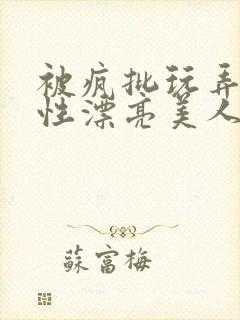 被疯批玩弄
性漂亮美人
蘇富梅